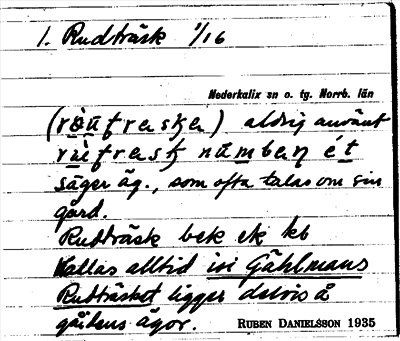 1. Rudträsk 1/16
Nederkalix sn o. tg. Norrb. län
aldrig använt
säger äg., som ofta talas om sin
gård.
Rudträsk bek ek kb
Kallas alltid isi Gählmans
Rudträsket ligger delvis å
gårdens ägor. RUBEN DANIELSSON 1935